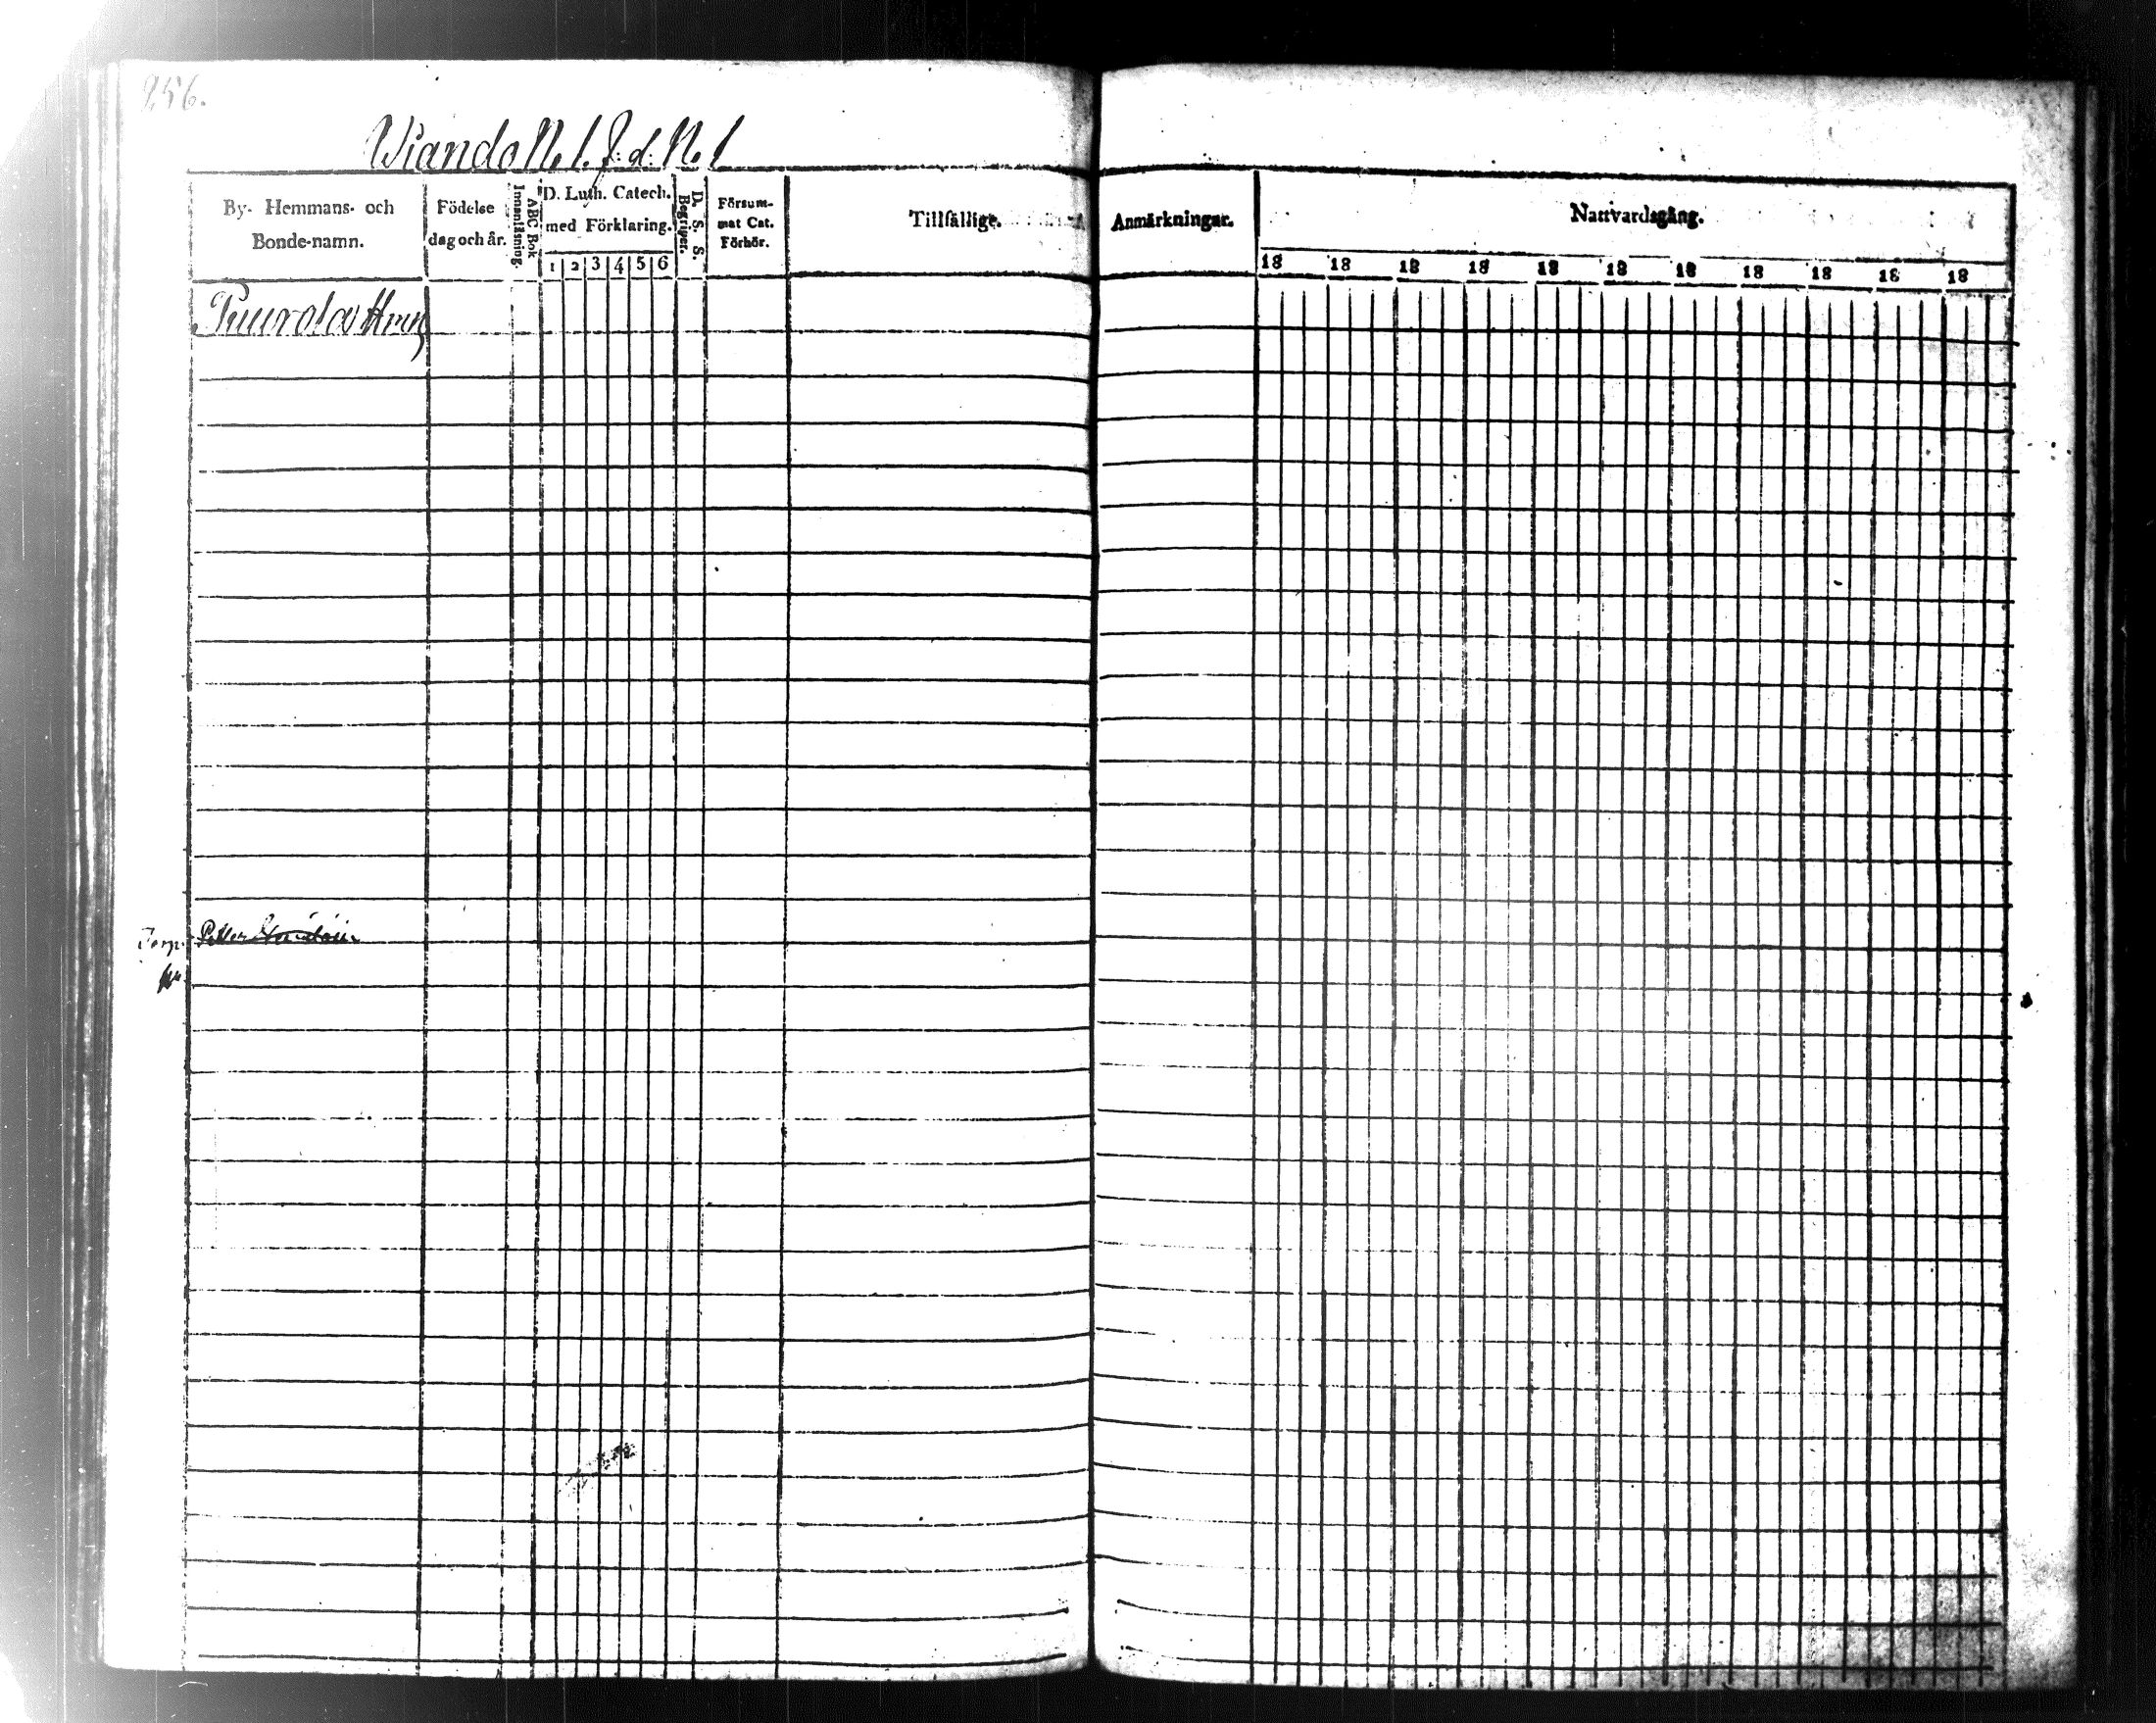 256.
Wiando No 1. J: d: No 1
By- Hemmans- och
Bonde-namn.
Födelse
dag och år.
Innanläsning.
ABC Bok
D. Luth. Catech.
med Förklaring.
1 2 3 4 5 6
Begriper.
D. S. S.
Försum-
mat Cat.
Förhör.
Tillfällige
Anmärkningar.
Nattvardsgång.
18 18 18 18 18 18 18 18 18 18 18
Torp.
Petter